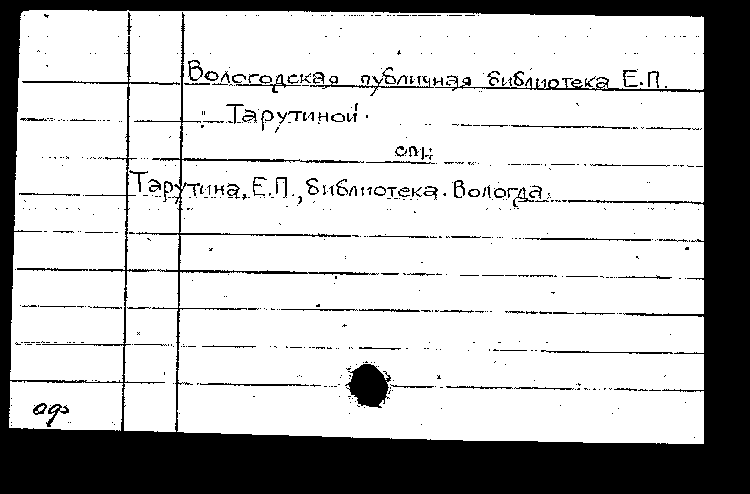 Вологодская публичная библиотека Е.П.
Тарутиной.
см:
Тарутина, Е.П., библиотека. Вологда.